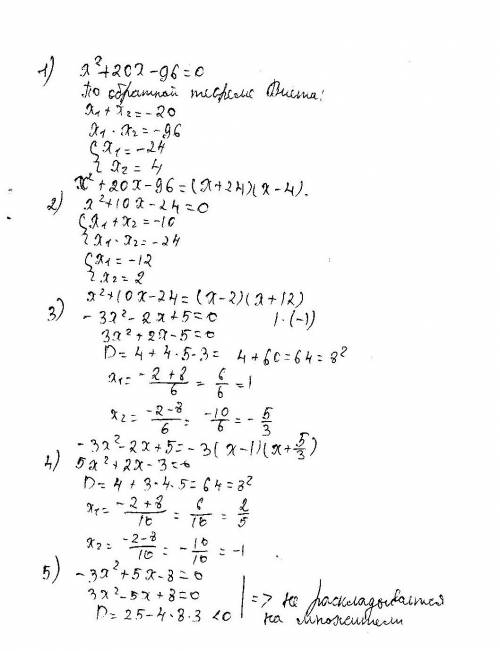 1) x²+20x-96=0
По обратной теореме Виета:
x₁+x₂=-20
x₁·x₂=-96
{x₁=-24
{x₂=4
x²+20x-96=(x+24)(x-4).
2) x²+10x-24=0
{x₁+x₂=-10
{x₁·x₂=-24
{x₁=-12
{x₂=2
x²+10x-24=(x-2)(x+12)
3) -3x²-2x+5=0 |·(-1)
3x²+2x-5=0
D=4+4·5·3= 4+60=64=8²
x₁= (-2+8)/6 = 6/6 =1
x₂= (-2-8)/6 = -10/6 = -5/3
-3x²-2x+5=-3(x-1)(x+5/3)
4) 5x²+2x-3=0
D=4+3·4·5=64=8²
x₁= (-2+8)/10 = 6/10 = 2/5
x₂= (-2-8)/10 = -10/10 = -1
5) -3x²+5x-8=0
3x²-5x+8=0 | => не раскладывается
D=25-4·8·3<0 | на множители